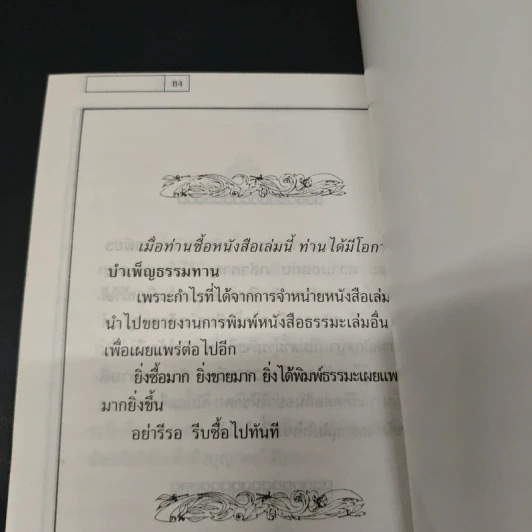 B4
เมื่อท่านซื้อหนังสือเล่มนี้ ท่านได้มีโอกา
บำเพ็ญธรรมทาน
เพราะกำไรที่ได้จากการจำหน่ายหนังสือเล่ม
นำไปขยายงานการพิมพ์หนังสือธรรมะเล่มอื่น
เพื่อเผยแพร่ต่อไปอีก
ยิ่งซื้อมาก ยิ่งขายมาก ยิ่งได้พิมพ์ธรรมะเผยแพ
มากยิ่งขึ้น
อย่ารีรอ รีบซื้อไปทันที